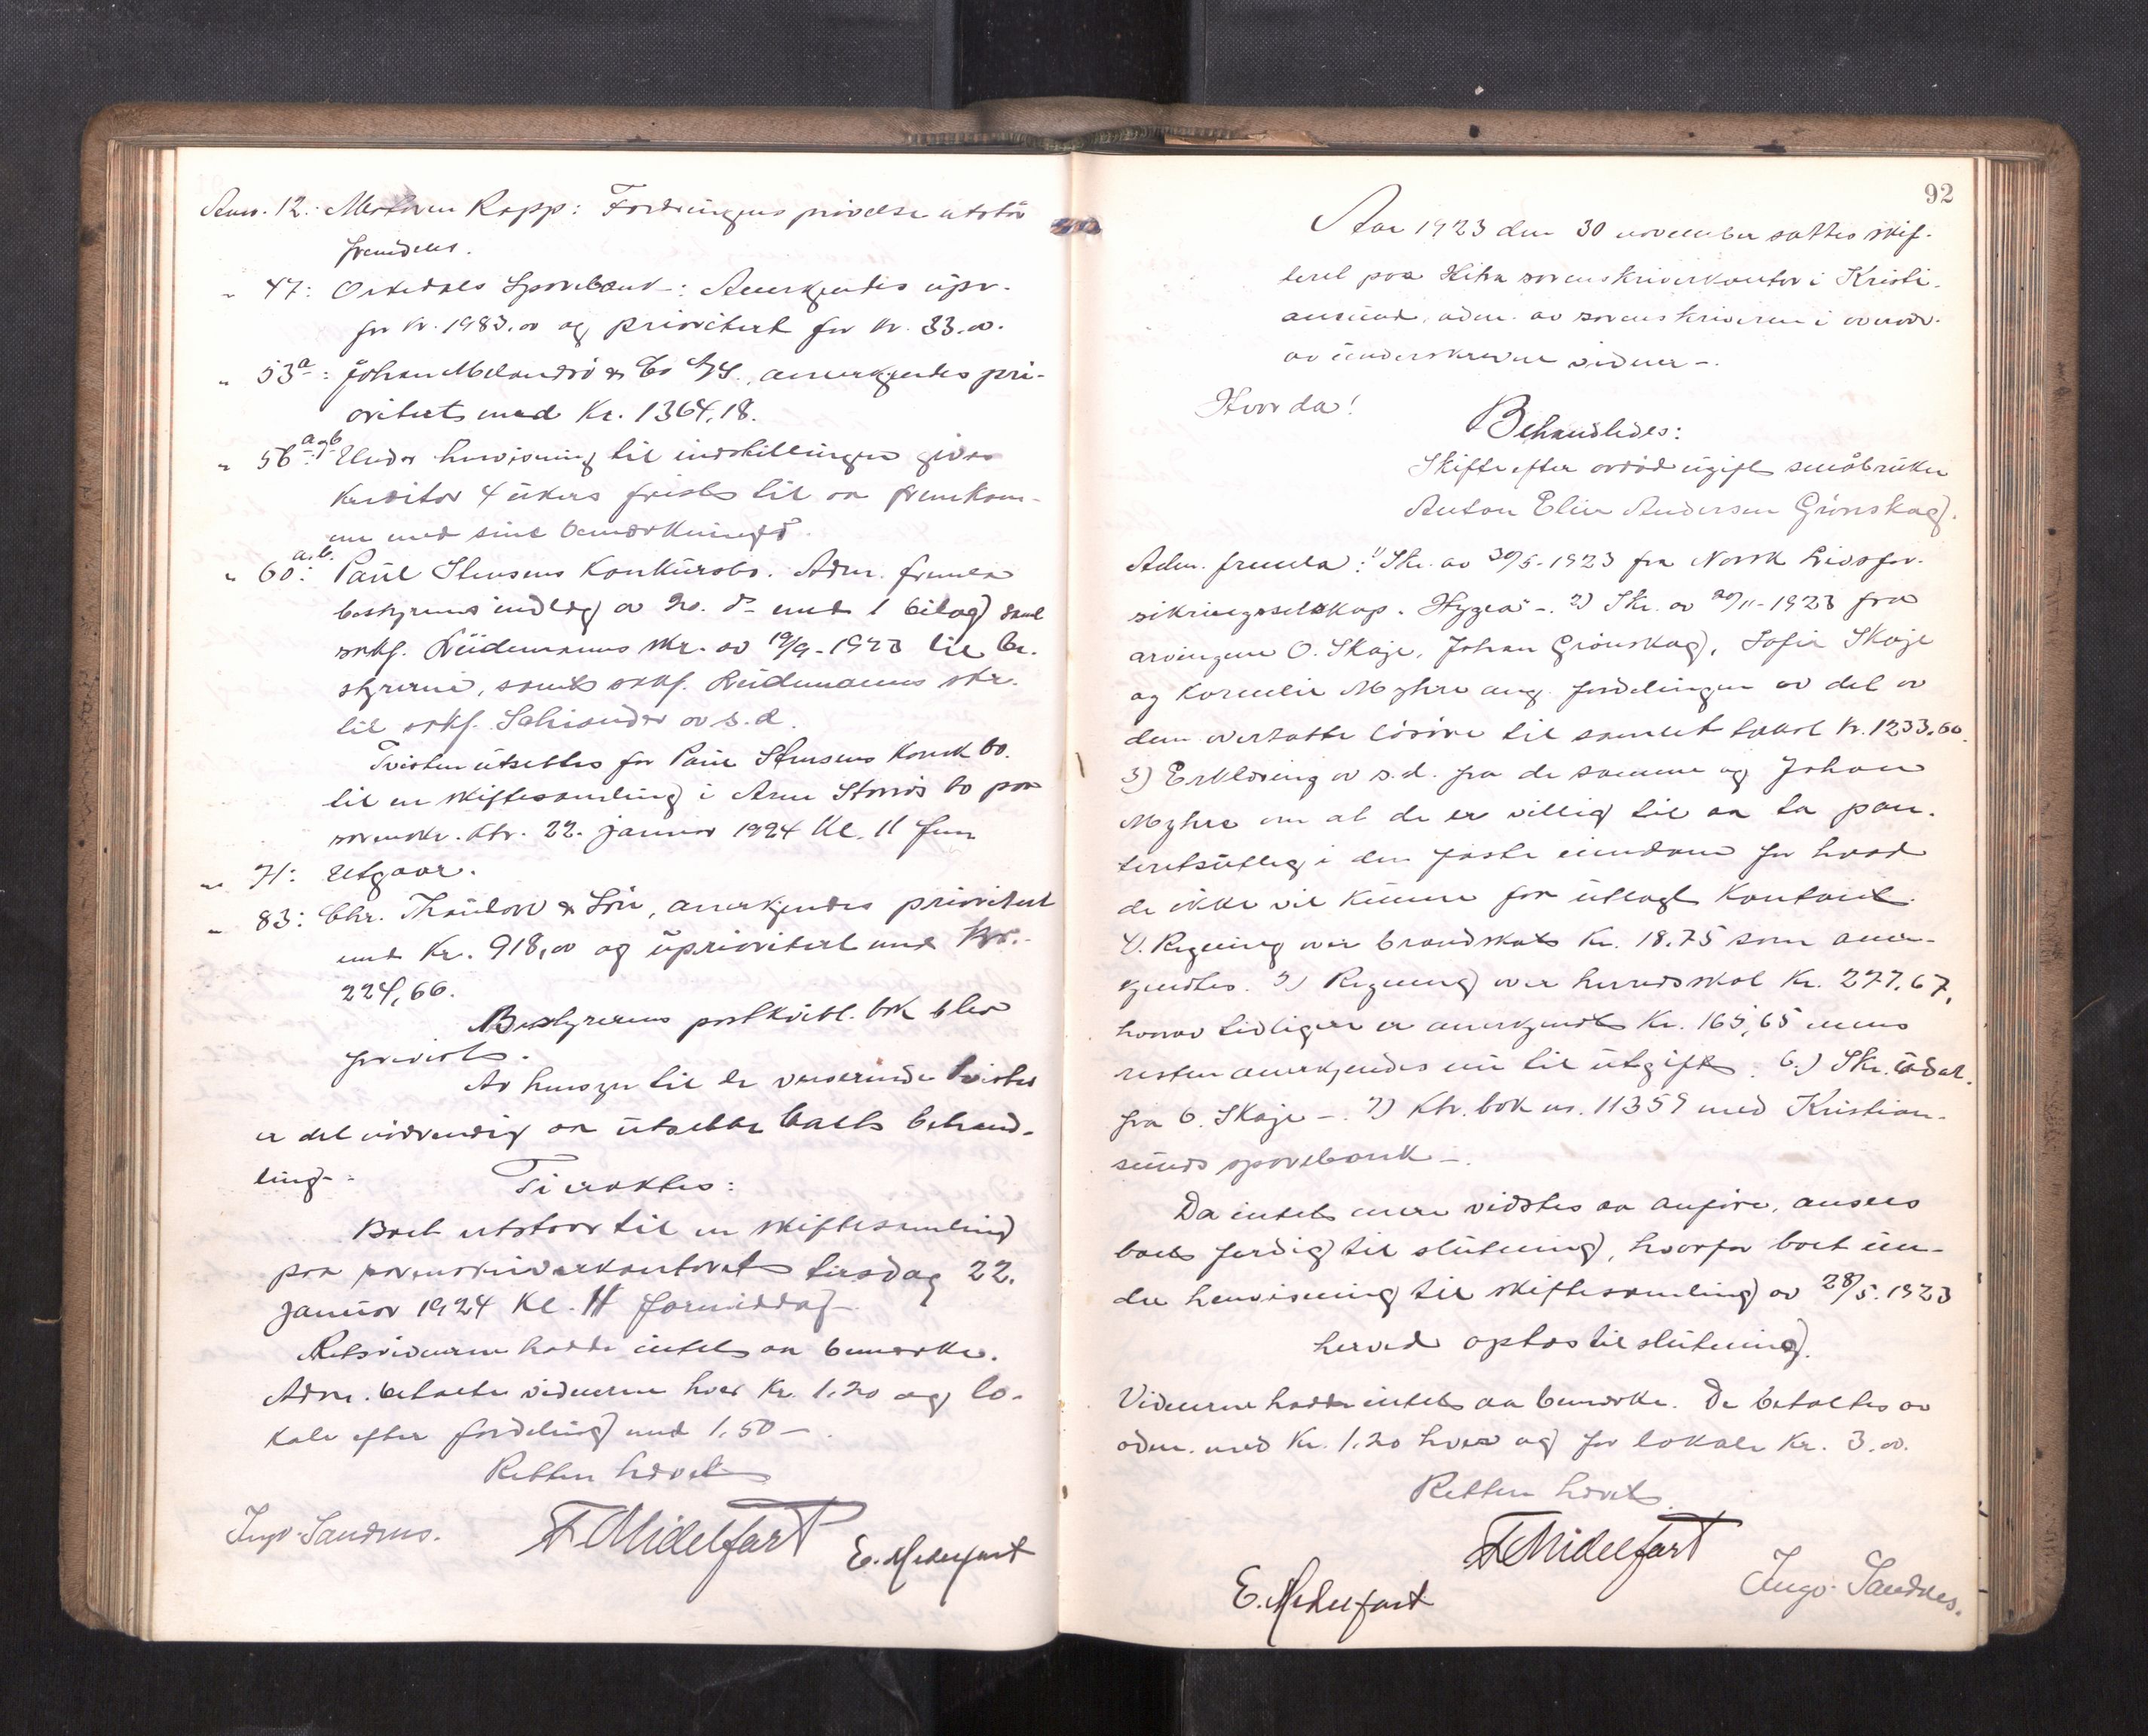 Anm. 12: Rapp: Fordringens prøvelse utstår
fremdeles.
" 47: Orkedals Sparebank: Anerkjendes upr.
for kr. 1983.00 og prioritert for kr. 33.00.
" 53a: Johan Melandsø & Co A/S., anerkjendes pri-
oritert med Kr. 1364,18.
" 56 a og b: Under henvisning til indstillingen gives
kreditor 4 ukers frist til aa fremkom-
me med sine bemerkninger.
" 60 a.b.: Paul Stensens Konkursbo. Adm. fremla
bestyrerens indlæg av 20. ds med 1 bilag samt
sakf. Lüdemanns skr. av 19/9-1923 til be-
styrerne, samt sakf. Lüdemanns skr.
til sakf. Schiander av s.d.
Tvisten utsettes for Paul Stensens konk bo.
til en skiftesamling i Arne Storøs bo paa
sorenskr. ktr. 22. januar 1924 kl. 11 fm
" 71: Utgaar.
" 83: Chr. Thaulow & Søn, anerkjendes prioritert
med Kr. 918,00 og uprioritert med kr.
224,66.
Bestyrerens postkvitt. bok blev
forevist.
Av hensyn til de verserende tvister
er det nødvendig aa utsette boets behand-
ling.
Ti vaktes:
Boet utstaar til en skiftesamling
paa sorenskriverkontoret tirsdag 22.
januar 1924 Kl. 11 formiddag
Retsvidnerne hadde intet aa bemerke.
Adm. betalte vidnerne hver Kr. 1.20 og lo-
kale efter fordeling med 1,50 –.
Retten hævet
Ingv. Sandnes. F. Midelfart E. Midelfart
92
Aar 1923 den 30 november sattes skif-
teret paa Hitra sorenskriverkontor i Kristi-
ansund, adm. av sorenskriveren i overvær
av underskrevne vidner –.
Hvorda!
Behandledes:
Skifte efter avdød ugift småbruker
Anton Elier Andersen Grønskag.
Adm. fremla: 1) Skr. av 30/5-1923 fra Norsk Livsfor-
sikringsselskap "Hygea" –. 2) Skr. av 20/11-1923 fra
arvingene O. Skaje, Johan Grønskag, Sofie Skaje
og Kornelie Myhre ang. fordelingen av det av
dem overtatte løsøre til samlet takst kr. 1233.60.
3) Erklæring av s.d. fra de samme og Johan
Myhre om at de er villig til aa ta pan-
teretsutlæg i den faste eiendom for hvad
de ikke vil kunne faa utlagt kontant.
4). Regning over brandskat Kr. 18.75 som aner-
kjendtes. 5) Regning over herredsskat Kr. 277.67,
hvorav tidligere er anerkjendt Kr. 165,65 mens
resten anerkjendes nu til utgift. 6.) Skr. udat.
fra O. Skaje –. 7) Ktr. bok nr. 11359 med Kristian-
sunds sparebank –.
Da intet mere vidstes aa anføre, ansees
boet færdig til slutning, hvorfor boet un-
der henvisning til skiftesamling av 28/5.1923
herved optas til slutning.
Vidnerne hadde intet aa bemerke. De betaltes av
adm. med Kr. 1.20 hver og for lokale Kr. 3.00.
Retten hævet.
F. Midelfart
E. Midelfart Ingv. Sandnes.